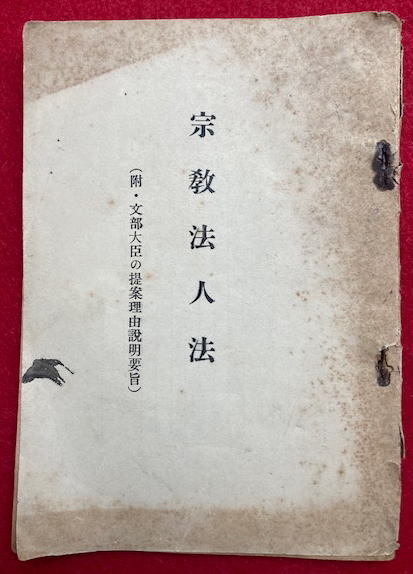 宗教法人法
(附・文部大臣の提案理由説明要旨)